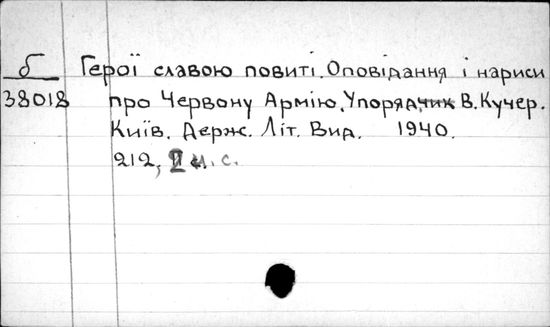 б Герої славою повиті. Оповідання і нариси
38018 про Червону Армію. Упорядчик В. Кучер.
Київ. Держ. Літ. Вид. 1940.
212, н. с.